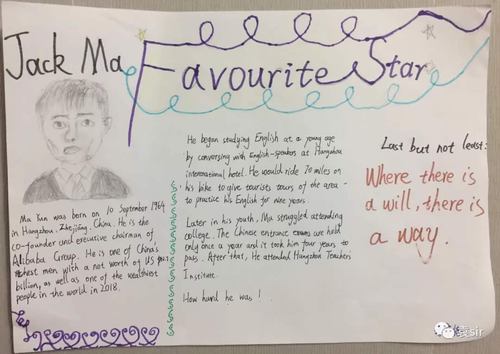 Jack Ma
Favourite Star
Ma Yun was born on 10 September 1964
in Hangzhou, Zhejiang, China. He is the
co-founder and executive chairman of
Alibaba Group. He is one of China's
richest men with a net worth of US
billion, as well as one of the wealthiest
people in the world in 2018.
He began studying English at a young age
by conversing with English-speakers at Hangzhou
international hotel. He would ride 70 miles on
his bike to give tourists tours of the area
to practise his English for nine years.
Later in his youth, Ma struggled attending
college. The Chinese entrance exams are held
only once a year and it took him four years to
pass. After that, He attended Hangzhou Teachers
Institute.
How hard he was!
Last but not least:
Where there is
a will, there is
a way.
sir